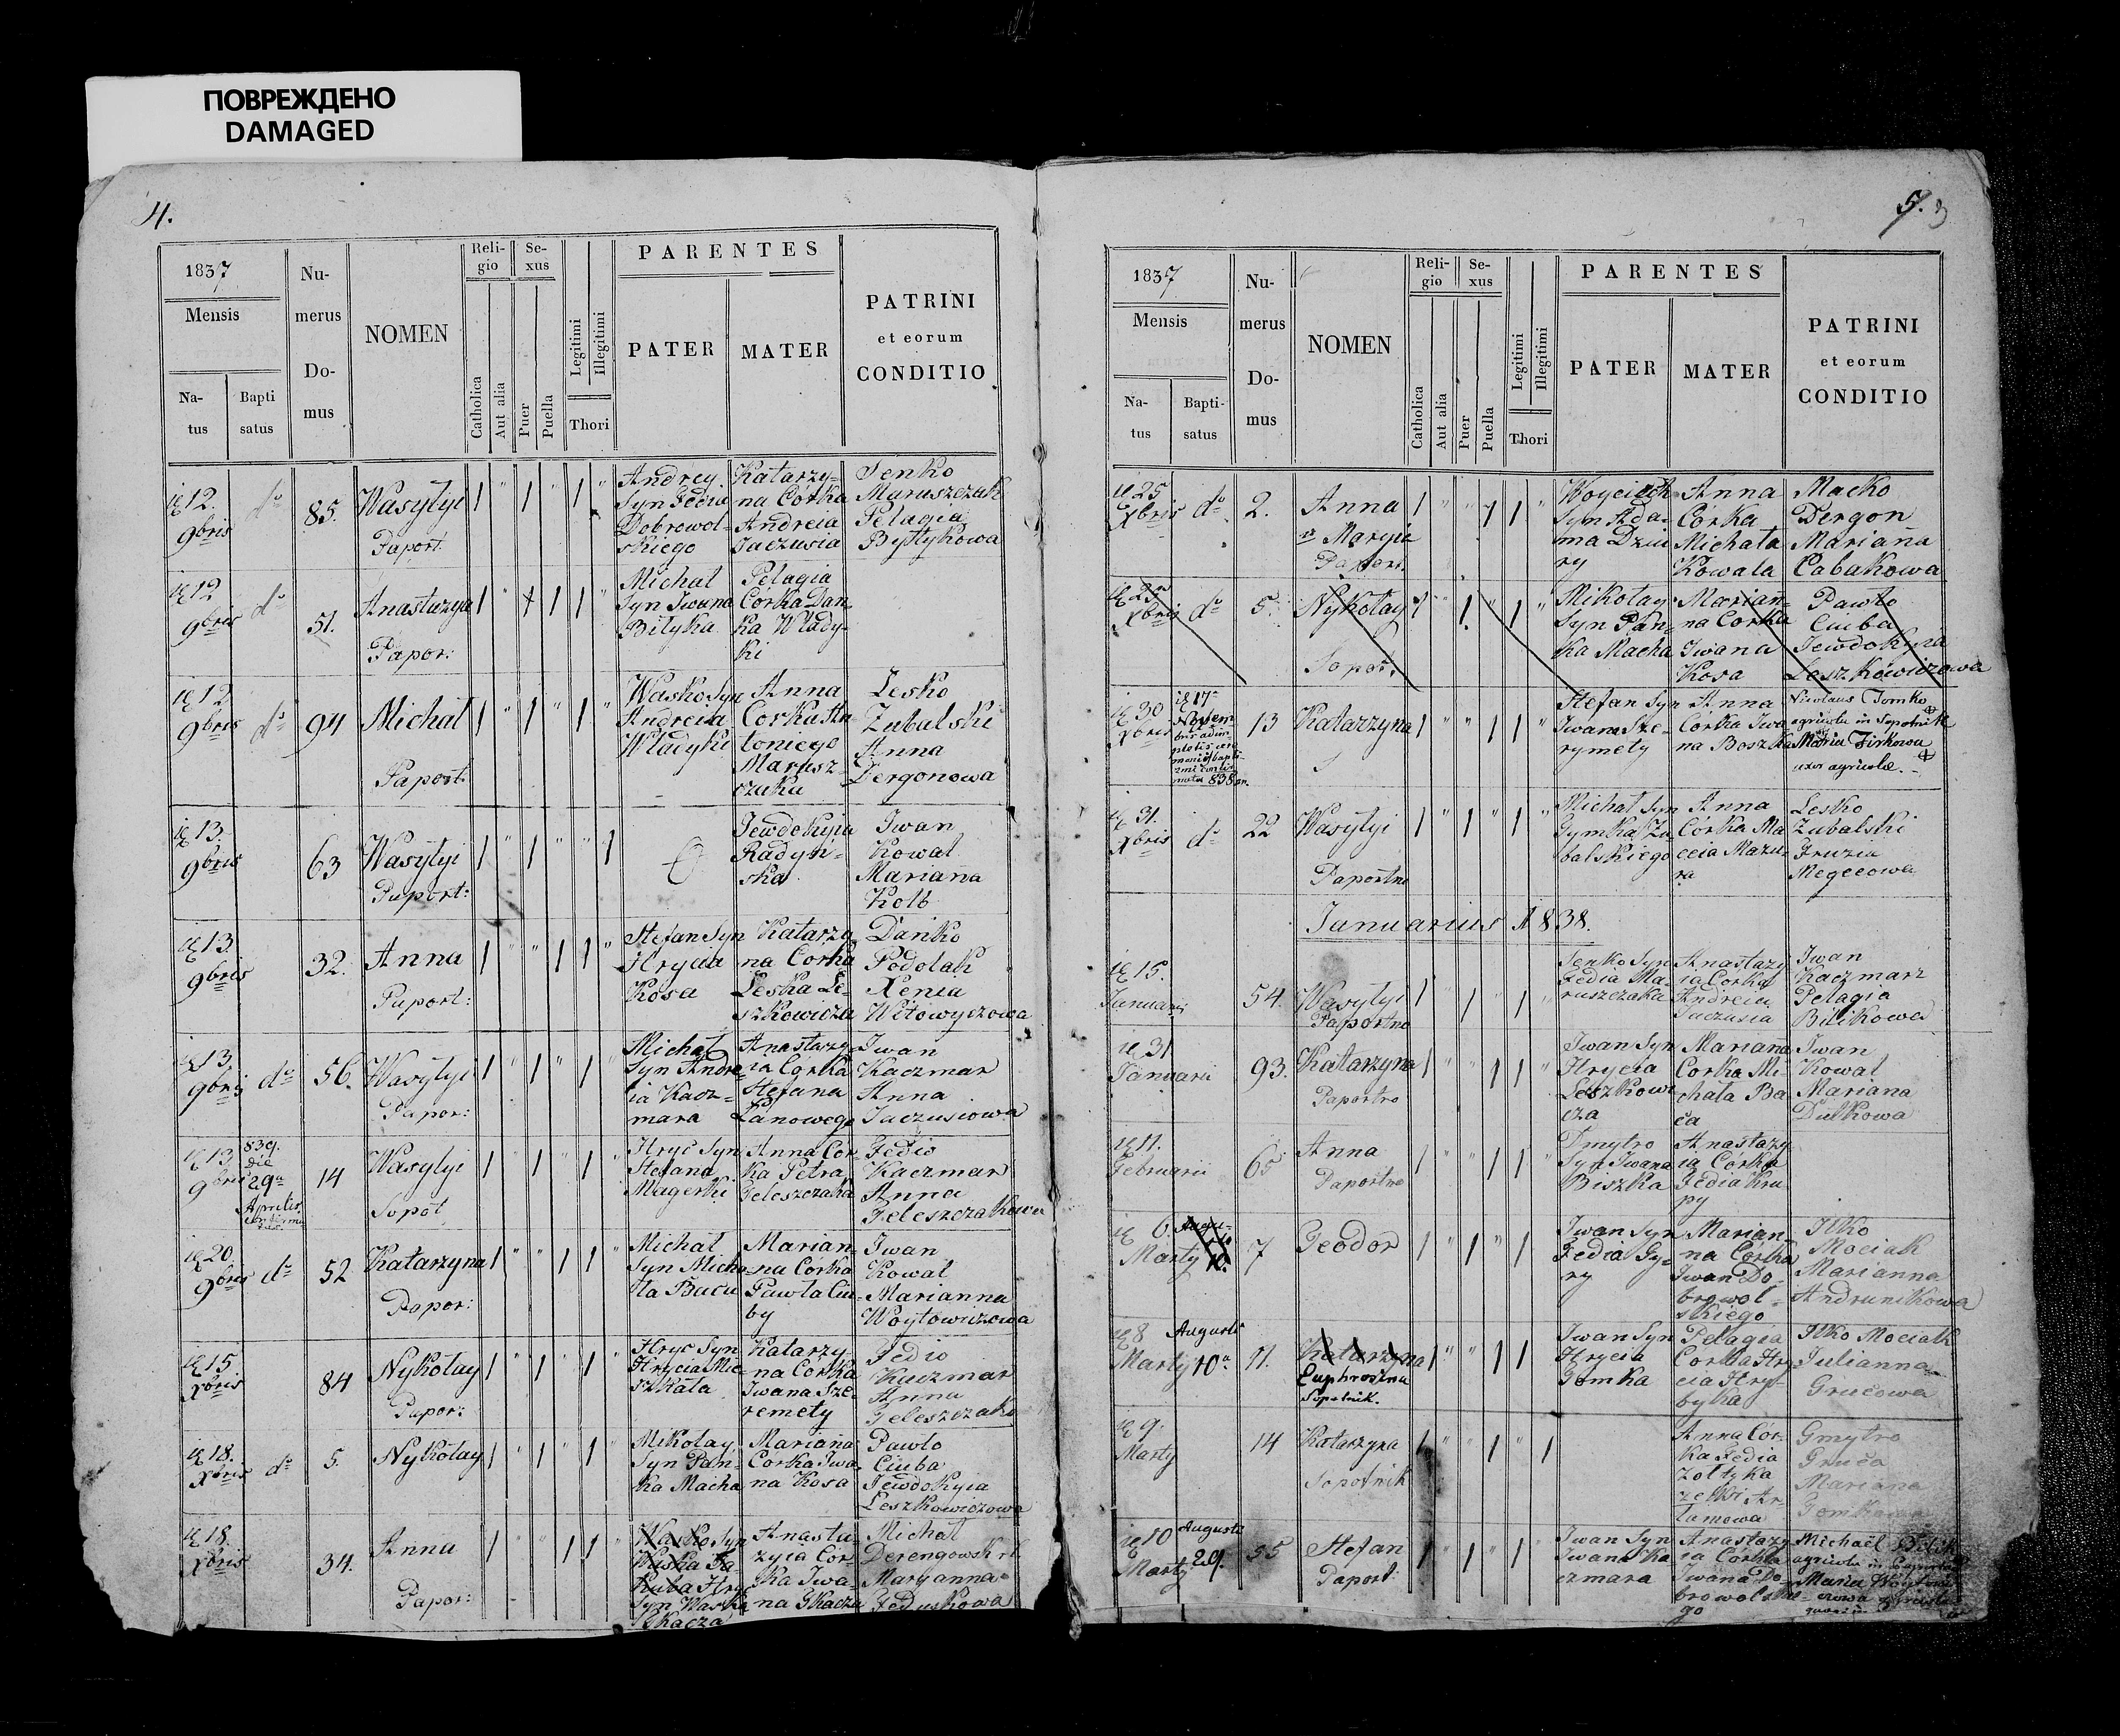 ПОВРЕЖДЕНО
DAMAGED
4.
1837
Mensis
Na-
tus
Bapti
satus
Nu-
merus
Do-
mus
NOMEN
Reli-
gio
Catholica
Aut alia
Se-
xus
Puer
Puella
Legitimi
Illegitimi
Thori
PARENTES
PATER
MATER
PATRINI
et eorum
CONDITIO
12.
9bris
do
85.
Wasylyi
Paport.
Andrey
Syn Fedia
Dobrowol-
skiego
Katarzy-
na Córka
Andreia
Jaczusia
Senko
Maruszczak
Pelagia
Bylykowa
12
9bris
do
51.
Anastazya
Papor:
Michal
Syn Iwana
Bilyka
Pelagia
Córka Dan
ka Wlady-
ki
12
9bris
do
94
Michal
Paport.
Wasko Syn
Andreia
Wladyki
Anna
Corka An
toniego
Marusz-
czaka
Lesko
Zubalski
Anna
Dergonowa
13.
9bris
63
Wasylyi
Paport:
Jewdokyia
Radyń-
ska
Iwan
Kowal
Mariana
Kolb
13
9bris
32.
Anna
Paport:
Stefan Syn
Hrycia
Kosa
Katarzy
na Corka
Leska Le-
szkowicza
Danko
Podolak
Xenia
Witowyczowa
13
9bris
do
56.
Wasylyi
Papor:
Michal
Syn Andre
ia Kacz-
mara
Anastazy
ia Córka
Stefana
Lanowego
Iwan
Kaczmar
Anna
Jaczusiowa
13
9bris
839.
die
29a
Aprilis
14
Wasylyi
Sopot
Hryć Syn
Stefana
Magerki
Anna Cor-
ka Petra
Teleszczaka
Fedio
Kaczmar
Anna
Teleszczakowa
20.
9bris
do
52
Katarzyna
Papor:
Michal
Syn Micha
la Baca
Marian-
na Córka
Pawla Ciu-
by
Iwan
Kowal
Marianna
Woytowiczowa
15
Xbris
84
Nykolay
Papor:
Hryc Syn
Hrycia Mie-
szkala
Katarzy
na Córka
Iwana Sze-
remety
Fedio
Kaczmar
Anna
Teleszczak
18.
Xbris
do
5.
Nykolay
Mikolay
Syn Pań-
ka Macha
Mariana
Corka Iwa
na Kosa
Pawlo
Ciuba
Jewdokyia
Leszkowiczowa
18.
Xbris
34.
Anna
Papor:
Wasko Syn
Hry
Syn Waska
Tkacza
Anasta
zyia Cor-
ka Iwa-
na Tkacza
Michal
Derengowski
Maryanna
Feduskowa
5. 3
1837
Mensis
Na-
tus
Bapti-
satus
Nu-
merus
Do-
mus
NOMEN
Reli-
gio
Catholica
Aut alia
Se-
xus
Puer
Puella
Legitimi
Illegitimi
Thori
PARENTES
PATER
MATER
PATRINI
et eorum
CONDITIO
25
Xbris
do
2.
Anna
Maryia
Paport.
Woyciech
Syn Ada-
ma Dziu
ry
Anna
Córka
Michala
Kowala
Macko
Dergon
Mariana
Cabakowa
Xbris
do
5.
Nykolay
Sopot.
Mikolay
Syn Pań-
ka Macha
Mariań-
na Corka
Iwana
Kosa
Pawlo
Ciuba
Jewdokyia
Leszkowiczowa
30
Xbris
17a
Novem
838
13
Katarzyna
S
Stefan Syn
Iwana Sze-
rymety
Anna
Corka Iwa
na Boszka
Nicolaus Tomko
agricola in Sopotnik
Maria Firkowa
uxor agricolae.
31.
Xbris
do
22
Wasylyi
Paportno
Michal Syn
Tymka Zu
balskiego
Anna
Córka Ma
ceia Mazu-
ra
Lesko
Zubalski
Fruzia
Megecowa
Januarius 1838.
15.
Januarii
54.
Wasylyi
Paportno
Senko Syn
Fedia Ma-
ruszczaka
Anastazy
ia Corka
Andreia
Jaczusia
Iwan
Kaczmarz
Pelagia
Bilikowa
31
Januarii
93.
Katarzyna
Paportno
Iwan Syn
Hrycia
Leszkowi
cza
Mariana
Corka Mi-
chala Ba
ca
Iwan
Kowal
Mariana
Dulkowa
11.
Februarii
65
Anna
Paportno
Dmytro
Syn Iwana
Biszka
Anastazy
ia Córka
Fedia Kru
py
6.
Marty
10.
7
Teodor
Iwan Syn
Fedia Gy-
ry
Marian-
na Corka
Iwan Do-
browol-
skiego
Ilko
Mociak
Marianna
Andrunikowa
8
Marty
Augusti
10a
11.
Katarzyna
Euphrosina
Sopotnik.
Iwan Syn
Hrycia
Tomka
Pelagia
Corka Hry
cia Hry-
byka
Ilko Mociak
Julianna
Grucowa
9.
Marty
14
Katarzyna
Sopotnik
Anna Cór-
ka Fedia
Zoltyka
Gmytro
Gruća
Mariana
Tomkowa
10
Marty
Augusti
29.
55
Stefan
Paport
Iwan Syn
Iwana Ka
czmara
Anastazy
ia Córka
Iwana Do-
browolskie
go
Michaël
agricola in
Maria